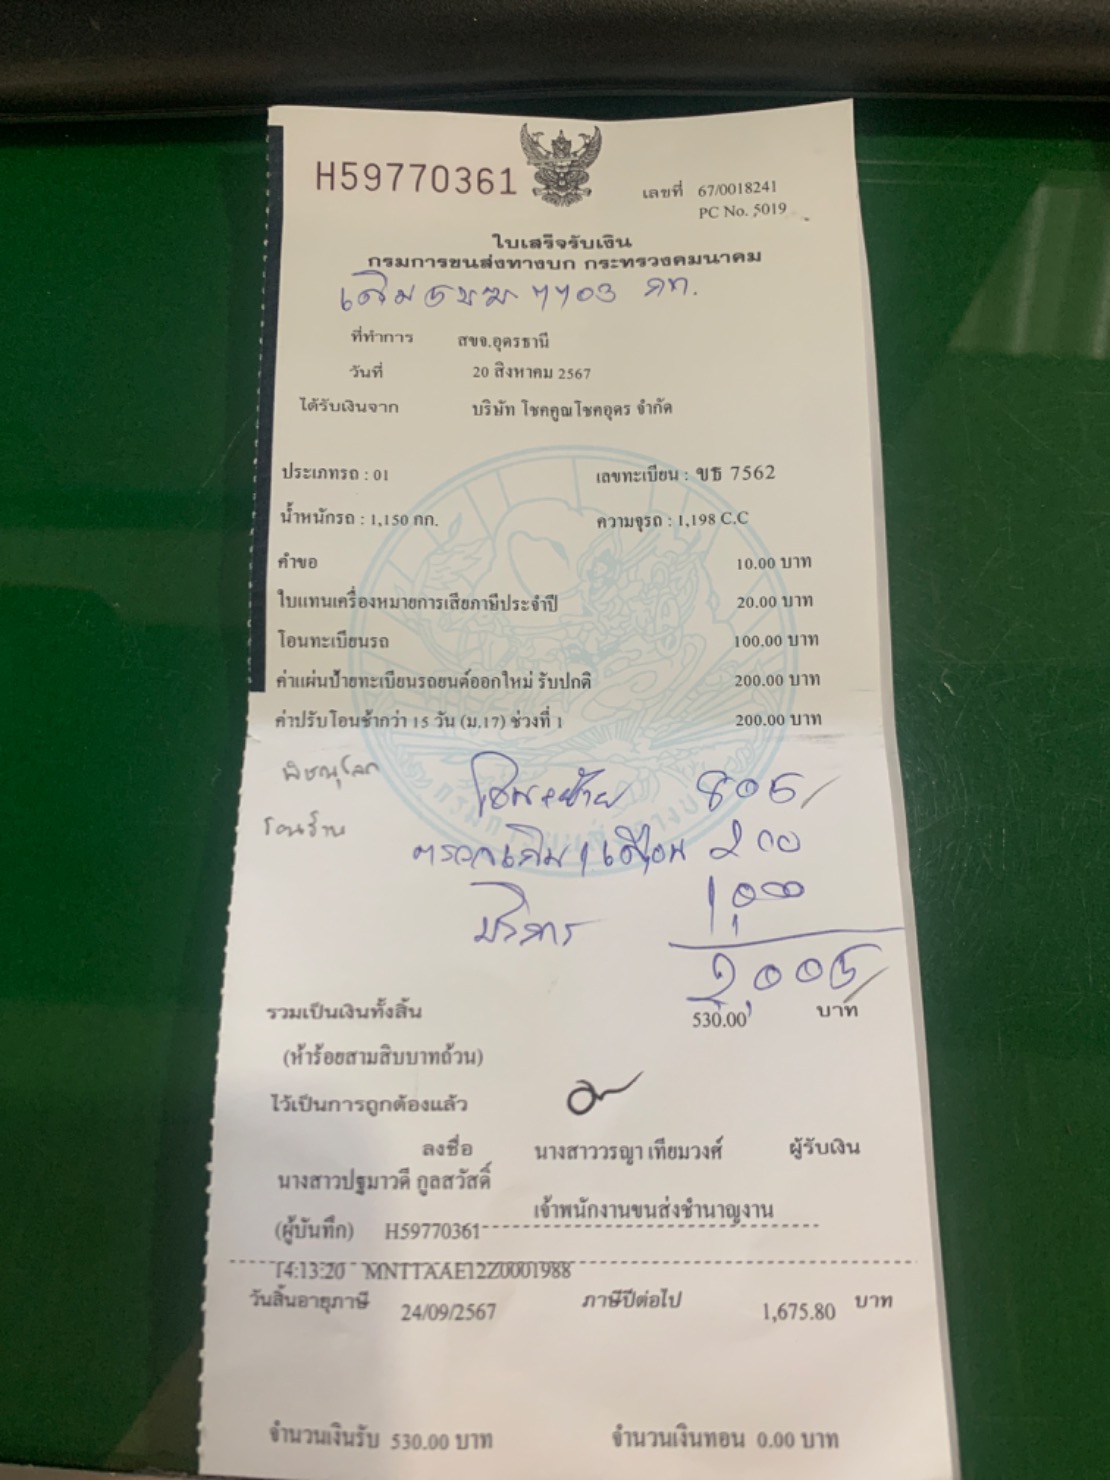 H59770361
เลขที่ 67/0018241
PC No. 5019
ใบเสร็จรับเงิน
กรมการขนส่งทางบก กระทรวงคมนาคม
เดิม 5ขฆ 7703 กท.
ที่ทำการ สขจ.อุดรธานี
วันที่ 20 สิงหาคม 2567
ได้รับเงินจาก บริษัท โชคคูณโชคอุดร จำกัด
ประเภทรถ : 01 เลขทะเบียน : ขธ 7562
น้ำหนักรถ : 1,150 กก. ความจุรถ : 1,198 C.C
คำขอ 10.00 บาท
ใบแทนเครื่องหมายการเสียภาษีประจำปี 20.00 บาท
โอนทะเบียนรถ 100.00 บาท
ค่าแผ่นป้ายทะเบียนรถยนต์ออกใหม่ รับปกติ 200.00 บาท
ค่าปรับโอนช้ากว่า 15 วัน (ม.17) ช่วงที่ 1 200.00 บาท
พิษณุโลก โอน+ย้าย 805/
โอนร้าน ตรวจเดิม 1 เดือน 200
บริการ 1,000
2,005/
รวมเป็นเงินทั้งสิ้น 530.00 บาท
(ห้าร้อยสามสิบบาทถ้วน)
ไว้เป็นการถูกต้องแล้ว
ลงชื่อ นางสาววรญา เทียมวงศ์ ผู้รับเงิน
นางสาวปฐมาวดี กูลสวัสดิ์
เจ้าพนักงานขนส่งชำนาญงาน
(ผู้บันทึก) H59770361
14:13:20 MNTTAAE12Z0001988
วันสิ้นอายุภาษี 24/09/2567 ภาษีปีต่อไป 1,675.80 บาท
จำนวนเงินรับ 530.00 บาท จำนวนเงินทอน 0.00 บาท